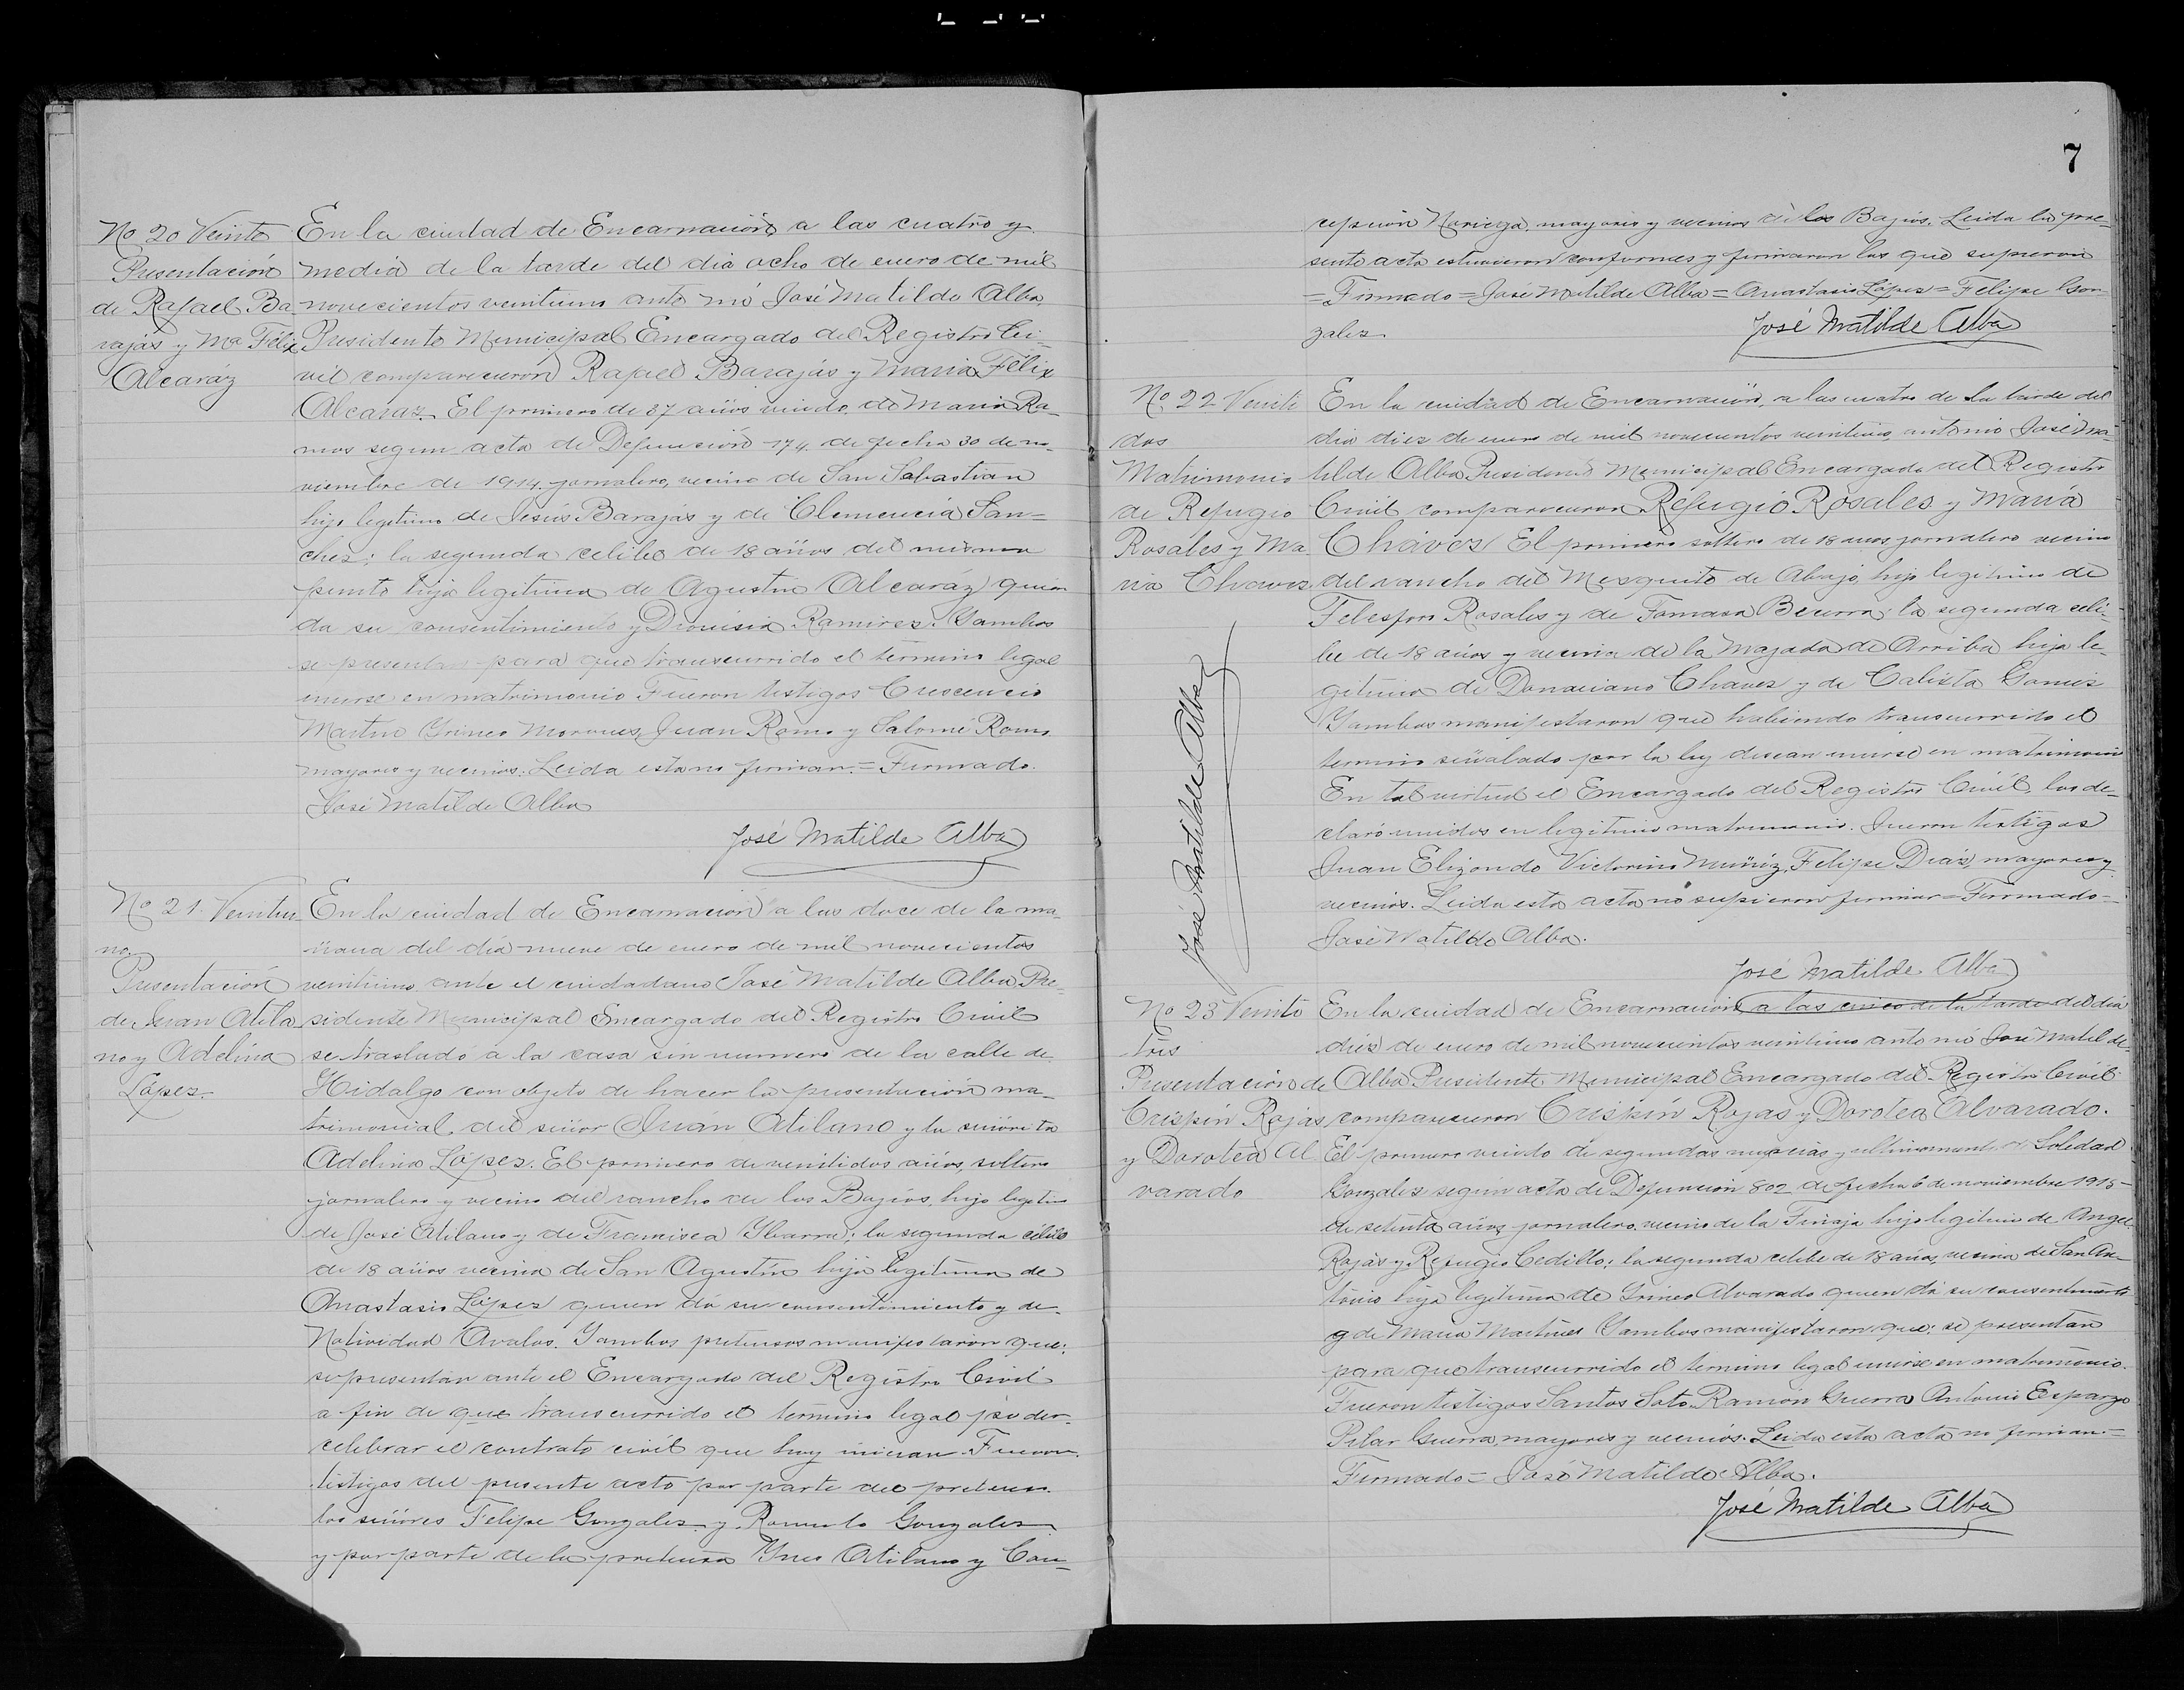 No 20 Veinte
Presentación
de Rafael Ba
rajás y Ma Félix
Alcaráz
En la ciudad de Encarnación, a las cuatro y
media de la tarde del dia ocho de enero de mil
novecientos veintiuno ante mi José Matilde Alba,
Presidente Municipal Encargado del Registro Ci-
vil comparecieron Rafael Barajás y Maria Félix
Alcaraz. El primero de 37 años viudo, de Maria Ra-
mos segun acta de Defunción 174 de fecha 30 de no-
viembre de 1914, jornalero, vecino de San Sebastian
hijo legitimo de Jesús Barajás y de Clemencia San=
chez; la segunda celibe de 18 años del mismo
punto hija legitima de Agustin Alcaráz quien
da su consentimiento y Dionisia Ramirez. Yambos
se presentan para que transcurrido el termino legal
unirse en matrimonio Fueron testigos Crescencio
Martin Yrineo Juan Romo y Salomé Romo
mayores y vecinos. Leida esta no firman. = Firmado.
José Matilde Alba
José Matilde Alba
No 21. Veintiu
no.
Presentación
de Juan Atila
no y Adelina
López.
En la ciudad de Encarnación a las doce de la ma-
ñana del día nueve de enero de mil novecientos
veintiuno ante el ciudadano José Matilde Alba Pre-
sidente Municipal Encargado del Registro Civil
se trasladó a la casa sin numero de la calle de
Hidalgo con objeto de hacer la presentación ma-
trimonial del señor Juan Atilano y la señorita
Adelina López. El primero de veintidos años, soltero
jornalero y vecino del rancho de los Bajíos, hijo legitimo
de José Atilano y de Francisca Ybarra; la segunda célibe
de 18 años vecina de San Agustín hija legitima de
Anastasio López quien dá su consentimiento y de
Natividad Avalos. Yambos pretensos manifestaron que:
se presentan ante el Encargado del Registro Civil
a fin de que transcurrido el termino legal poder
celebrar el contrato civil que hoy inician. Fueron
testigos del presente acto por parte del pretenso
los señores Felipe Gonzalez y Romulo Gonzalez
y por parte de la pretensa Ynes Atilano y Con-
7
cepcion Noriega, mayores y vecinos de los Bajios. Leida la pre-
sente acta estuvieron conformes y firmaron los que supieron
= Firmado = José Matilde Alba = Anastasio López = Felipe Gon
zalez
José Matilde Alba
No. 22 Veinti
dos
Matrimonio
de Refugio
Rosáles y Ma
ria Chavez.
José Matilde Alba
En la ciudad de Encarnación, a las cuatro de la tarde del
dia diez de enero de mil novecientos veintiuno, ante mi José Ma-
tilde Alba Presidente Municipal Encargado del Registro
Civil comparecieron Refugio Rosales y María
Cháves El primero soltero de 18 años jornalero vecino
del rancho del Mezquite de Abajo, hijo legitimo de
Telesforo Rosales y de Tomasa Becerra; la segunda celi-
be de 18 años y vecina de la Majada de Arriba hija le-
gitima de Donaciano Chavez y de Calixta Gomez
Yambos manifestaron que habiendo transcurrido el
termino señalado por la ley desean unirse en matrimonio
En tal virtud el Encargado del Registro Civil, los de-
claró unidos en legitimo matrimonio. Fueron testigos
Juan Elizondo Victorino Muñiz, Felipe Diaz, mayores y
vecinos. Leida esta acta no supieron firmar = Firmado-
José Matilde Alba.
José Matilde Alba
No 23 Veinte
tres
Presentación de
Crispín Rojas
y Dorotea Al
varado
En la ciudad de Encarnación a las cinco de la tarde del dia
diez de enero de mil novecientos veintiuno ante mi José Matilde
Alba Presidente Municipal Encargado del Registro Civil
comparecieron Crispín Rojas y Dorotea Alvarado.
El primero viudo de segundas nupcias y ultimamente de Soledad
Gonzalez según acta de Defuncion 802 de fecha 6 de noviembre 1915-
de setenta años, jornalero, vecino de la Tinaja hijo legitimo de Angel
Rojas y Refugio Cedillo; la segunda celibe de 18 años, vecina de San An-
tonio hija legitima de Yrineo Alvarado quien dá su consentimiento
y de Maria Martinez Yambos manifestaron que: se presentan
para que transcurrido el termino legal unirse en matrimonio.
Fueron testigos Santos Soto Ramón Guerra Antonio Esparza
Pilar Guerra, mayores y vecinos. Leida esta acta no firman.=
Firmado = José Matilde Alba.
José Matilde Alba